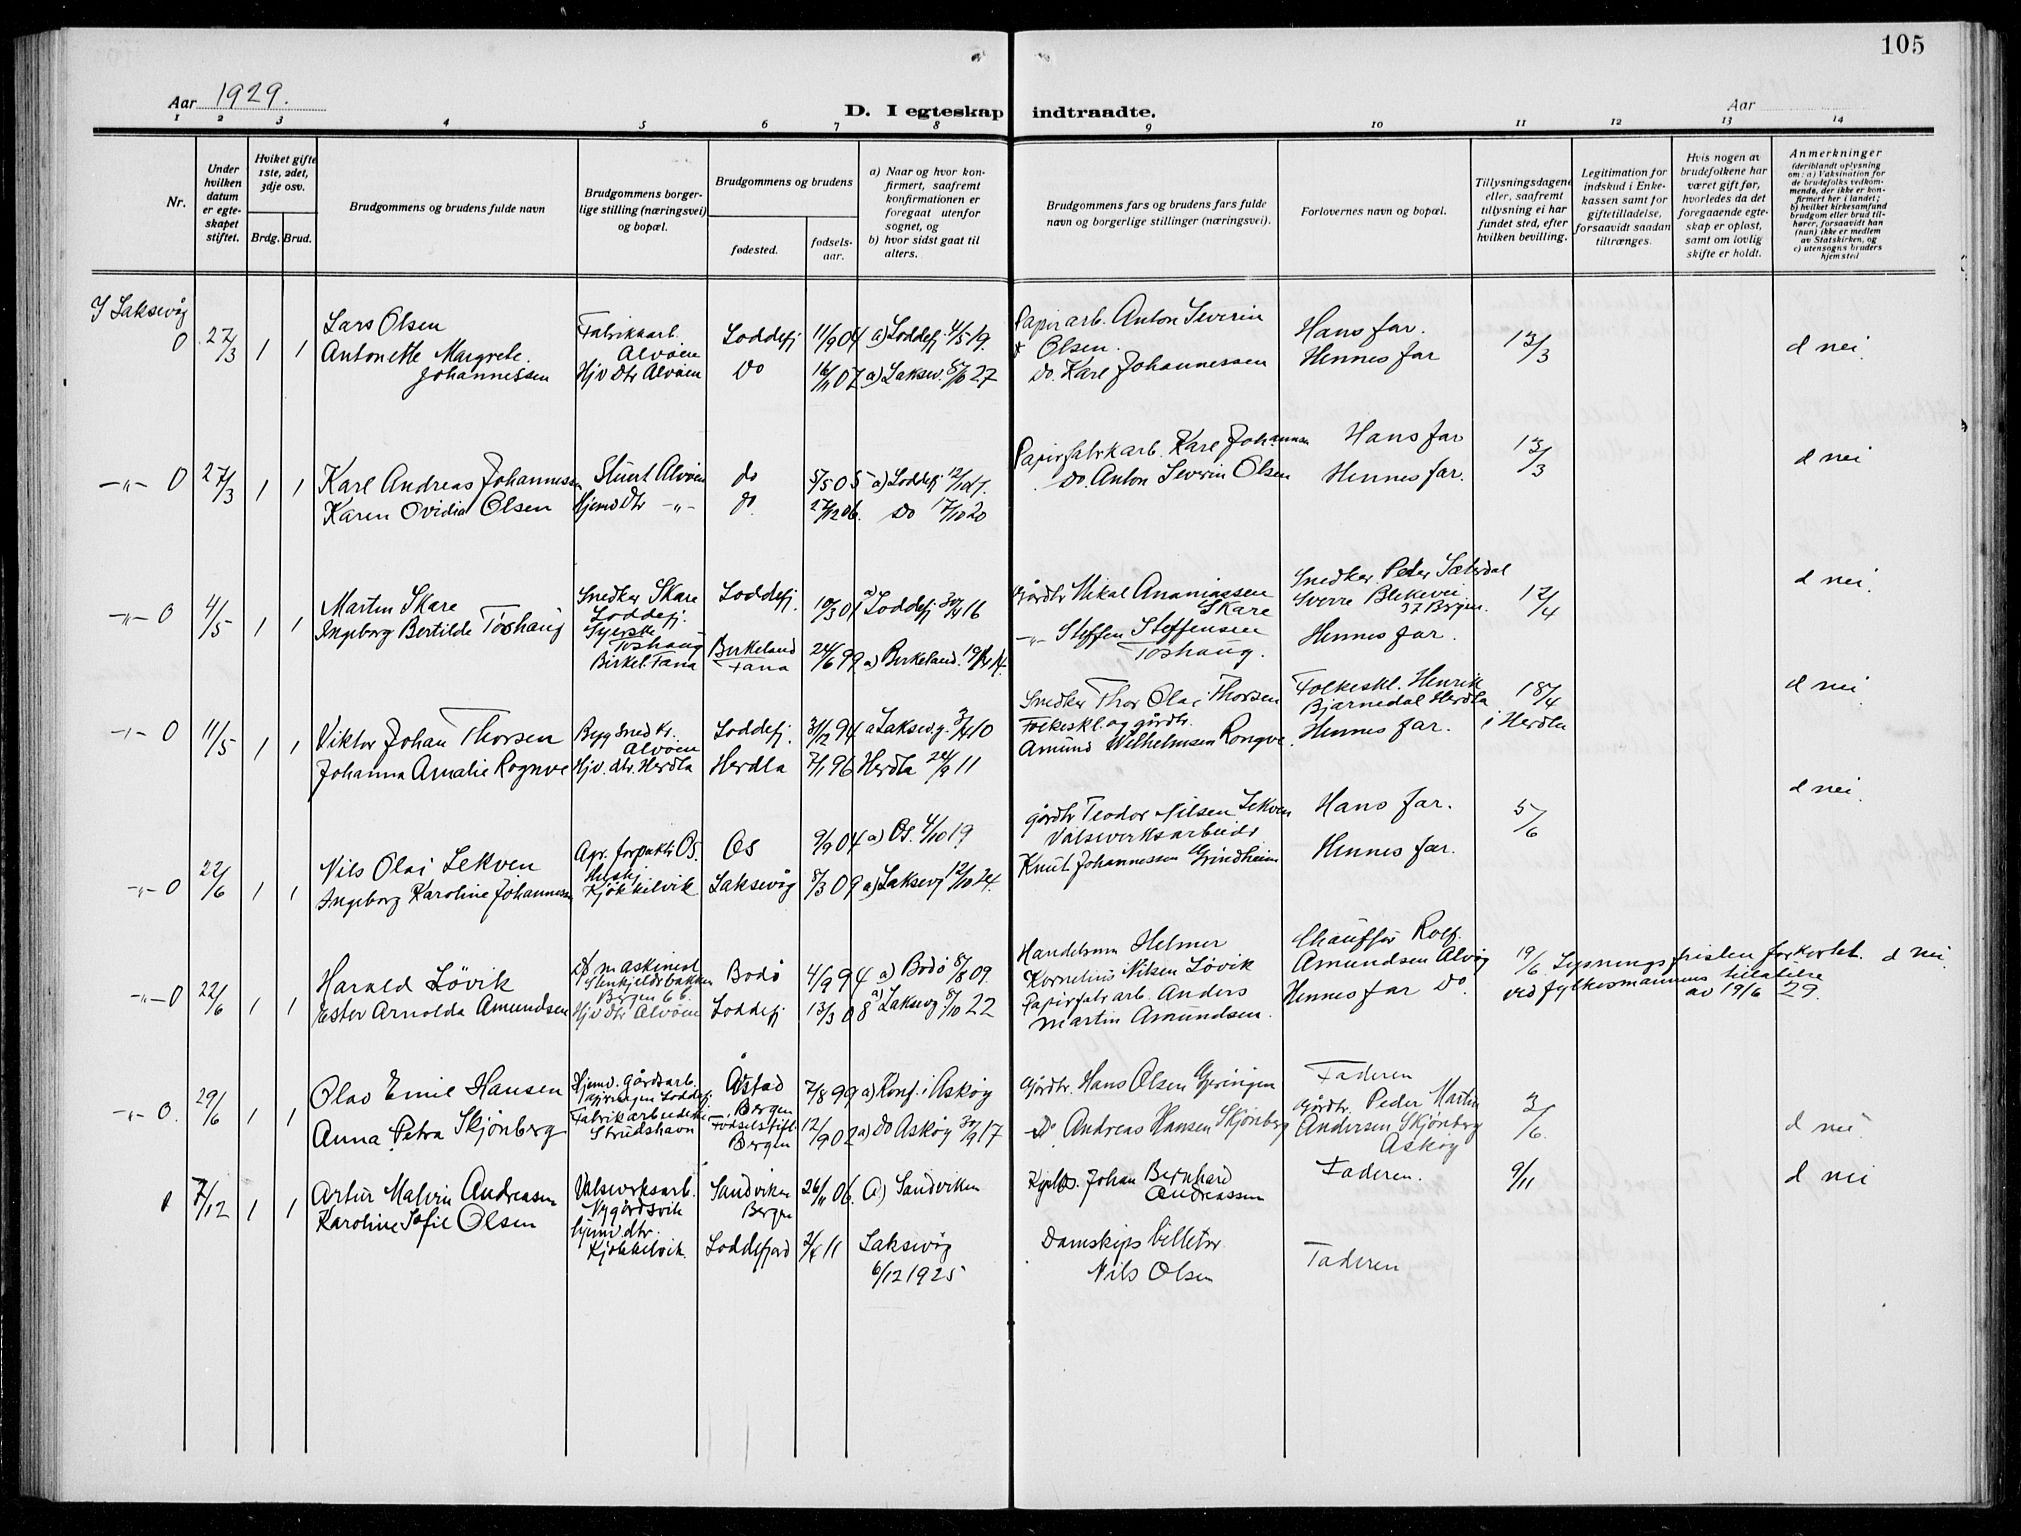 105
Aar 1929.
D. I egteskap indtraadte.
Aar
1 2 3 4 5 6 7 8 9 10 11 12 13 14
Nr.
Under hvilken datum er egteskapet stiftet.
Hviket gifte 1ste, 2det, 3dje osv.
Brdg. Brud.
Brudgommens og brudens fulde navn
Brudgommens borgerlige stilling (næringsvei) og bopæl.
Brudgommens og brudens
fødested.
fødselsaar.
a) Naar og hvor konfirmert, saafremt konfirmationen er foregaat utenfor sognet, og
b) hvor sidst gaat til alters.
Brudgommens fars og brudens fars fulde navn og borgerlige stillinger (næringsvei).
Forlovernes navn og bopæl.
Tillysningsdagene eller, saafremt tillysning ei har fundet sted, efter hvilken bevilling.
Legitimation for indskud i Enkekassen samt for giftetilladelse, forsaavidt saadan tiltrænges.
Hvis nogen av brudefolkene har været gift før, hvorledes da det foregaaende egteskap er opløst, samt om lovlig skifte er holdt.
Anmerkninger
(deriblandt oplysning om: a) Vaksination for de brudefolks vedkommende, der ikke er konfirmert her i landet; b) hvilket kirkesamfund brudgom eller brud tilhører, forsaavidt han (hun) ikke er medlem av Statskirken, og c) utensogns bruders hjemsted
I Laksevåg
0 27/3 1 1 Lars Olsen Fabrikkarb. Alvøen Loddefj 11/9 04 a) Loddefj 4/5 19. Papirarb. Anton Severin Olsen. Hans far. 13/3 d nei
Antonette Margrete Johannessen Hjv dtr Alvøen Do 16/11 07 a) Laksev. 27 Do. Karl Johannessen Hennes far
-"- 0 27/3 1 1 Karl Andreas Johannessen Alvøen do 5/5 05 a) Loddefj Papirfabrikarb. Karl Johannesen Hans far 13/3 d nei
Karen Ovidia Olsen Hjemv Dtr -"- do 27/12 06. Do 17/10 20 Do. Anton Severin Olsen Hennes far.
-"- 0 4/5 1 1 Martin Skare Snedker Skare Loddefj. Loddefj. 10/3 01 a) Loddefj 30/4 16 Gårdbr Mikal Ananiassen Skare Snedker Peder Sæterdal Sverre 37 Bergen. 12/4 d nei.
Ingeborg Bertilde Toshaug Syerske Toshaug Birkel. Fana Birkeland Fana 24/6 99 a) Birkeland. -"- Steffen Steffensen Toshaug. Hennes far.
-"- 0 11/5 1 1 Viktor Johan Thorsen Bygsnedkr. Alvøen Loddefj. 31/12 94 a Laksevg. 3/4 10 Snedker Thor Olai Thorsen Folkeskl. Henrik Bjarnedal Herdla 18/4 i Herdla d nei
Johanna Amalie Rognve Hjv. dtr. Herdla Herdla 7/1 96 Herdla 24/9 11 Folkeskl. og gårdbr. Amund Wilhelmsen Rongve. Hennes far.
-"- 0 22/6 1 1 Nils Olai Lekven Agr. forpaktr Os. Os 9/9 04 a) Os. 4/10 19 gårdbr Teodor Nilsen Lekven Hans far. 5/6 d nei.
Ingeborg Karoline Johannessen Kjøkkelvik Laksevåg 8/3 09 a) Laksevg 12/10 24. Valseverksarbeider Knut Johannessen Grindheim Hennes far.
-"- 0 22/6 1 1 Harald Løvik maskinist Bergen Bodø 4/9 94 a) Bodø 8/8 09. Handelsmn Helmer Kornelius Nilsen Løvik Chauffør Rolf Amundsen Alvøy 19/6. Lysningsfristen forkortet d nei.
Ester Arnolda Amundsen Hjv dtr Alvøen Loddefj 13/3 08 a) Laksevg 8/10 22 Papirfabrarb. Anders Martin Amundsen. Hennes far Do. ved fylkesmannens tillatelse av 19/6 29.
-"- 0. 29/6 1 1 Olav Emil Hansen Hjemv. gårdsarb. Loddefj Åstad 7/8 99 a) Konf. i Askøy Gårdbr. Hans Olsen Gjeringen Faderen 3/6.
Anna Petra Skjønberg Fabrikarbeiderske Strudshavn Bergen Fødselstift. Bergen 12/9 02 a) Do Askøy 30/9 17 Do. Andreas Hansen Skjønberg Gårdbr. Peder Martin Andersen Skjønberg Askøy d nei.
7/12 1 1 Artur Malvin Andreassen Valseverksarb. Nygårdsvik Sandviken Bergen 26/11 06. a) Sandviken Johan Bernhard Andreassen Faderen. 9/11 d nei
Karoline Sofie Olsen hjemv. dtr. Kjøkkelvik. Loddefjord 11 Laksevåg 6/12 1925 Damskips billetør Nils Olsen Faderen